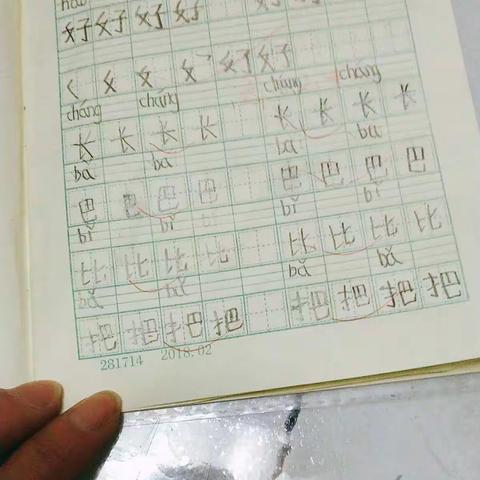 hǎo
好 好 好 好 好 好
く 女 好 好
cháng cháng cháng cháng
长 长 长 长 长 长 长 长
bā ba ba ba
巴 巴 巴 巴 巴 巴 巴 巴
bǐ bǐ bǐ bǐ
比 比 比 比 比 比 比 比
bǎ bǎ bǎ bǎ
把 把 把 把 把 把 把 把
281714 2018.02